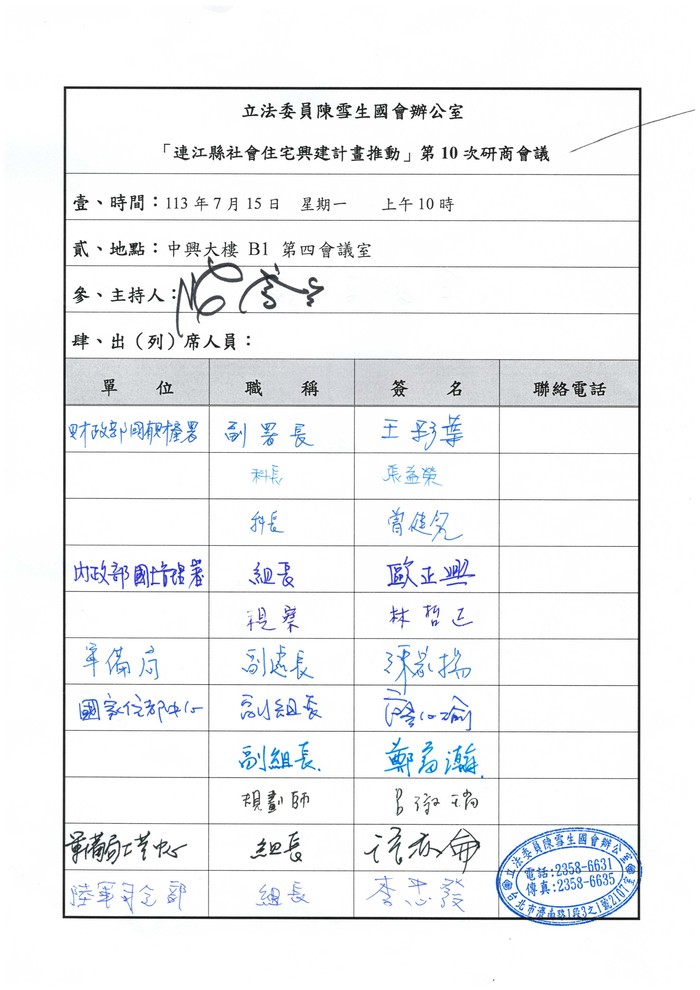 立法委員陳雪生國會辦公室
「連江縣社會住宅興建計畫推動」第 10 次研商會議
壹、時間：113 年 7 月 15 日 星期一 上午 10 時
貳、地點：中興大樓 B1 第四會議室
參、主持人：
肆、出（列）席人員：
單 位 職 稱 簽 名 聯絡電話
財政部國有財產署 副署長 王彩葉
科長 張益榮
科長 曾健
內政部國土管理署 組長 歐正興
視察 林哲
軍備局 副處長 揚
國家住都中心 副組長 瑜
副組長. 鄭 瀚.
規劃師
軍備局工營中心 組長
陸軍司令部 組長 李忠發
立法委員陳雪生國會辦公室
電話:2358-6631
傳真:2358-6635
台北市濟南路1段3之1號2107室